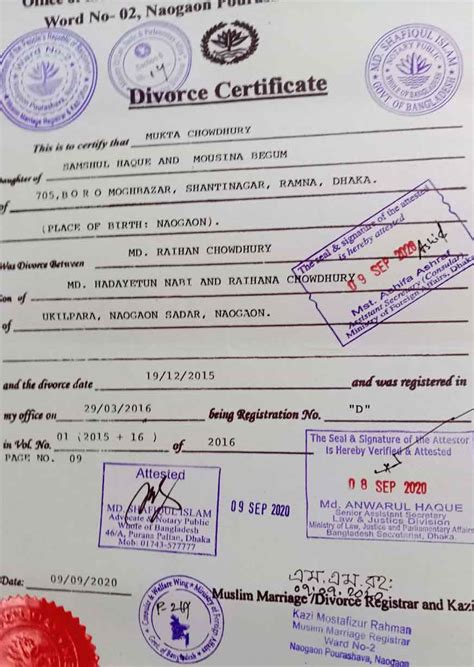 Word No- 02, Naogaon
MD. SHAFIQUL ISLAM
NOTARY PUBLIC
GOVT. OF BANGLADESH
Divorce Certificate
This is to certify that MUKTA CHOWDHURY
Daughter of SAMSHUL HAQUE AND MOUSINA BEGUM
of 705, BORO MOGHBAZAR, SHANTINAGAR, RAMNA, DHAKA.
(PLACE OF BIRTH: NAOGAON).
Was Divorce Between MD. RAIHAN CHOWDHURY
Son of MD. HADAYETUN NABI AND RAIHANA CHOWDHURY
of UKILPARA, NAOGAON SADAR, NAOGAON.
The seal & signature of the attested
is hereby attested
09 SEP 2020
Mst. Ashifa Ashraf
Assistant Secretary (Consular)
Ministry of Foreign Affairs, Dhaka
and the divorce date 19/12/2015 and was registered in
my office on 29/03/2016 being Registration No. "D"
in Vol. No. 01 (2015 + 16 ) of 2016
PAGE NO. 09
The Seal & Signature of the Attestor
is Hereby Verified & Attested
08 SEP 2020
Md. ANWARUL HAQUE
Senior Assistant Secretary
Law & Justice Division
Ministry of Law, Justice and Parliamentary Affairs
Bangladesh Secretariat, Dhaka.
Attested
MD. SHAFIQUL ISLAM
Advocate & Notary Public
Whole of Bangladesh
46/A, Purana Paltan, Dhaka
Mob: 01743-577777
09 SEP 2020
Date: 09/09/2020
Muslim Marriage/Divorce Registrar and Kazi
Kazi Mostafizur Rahman
Muslim Marriage Registrar
Ward No-2
Naogaon Pourashava, Naogaon